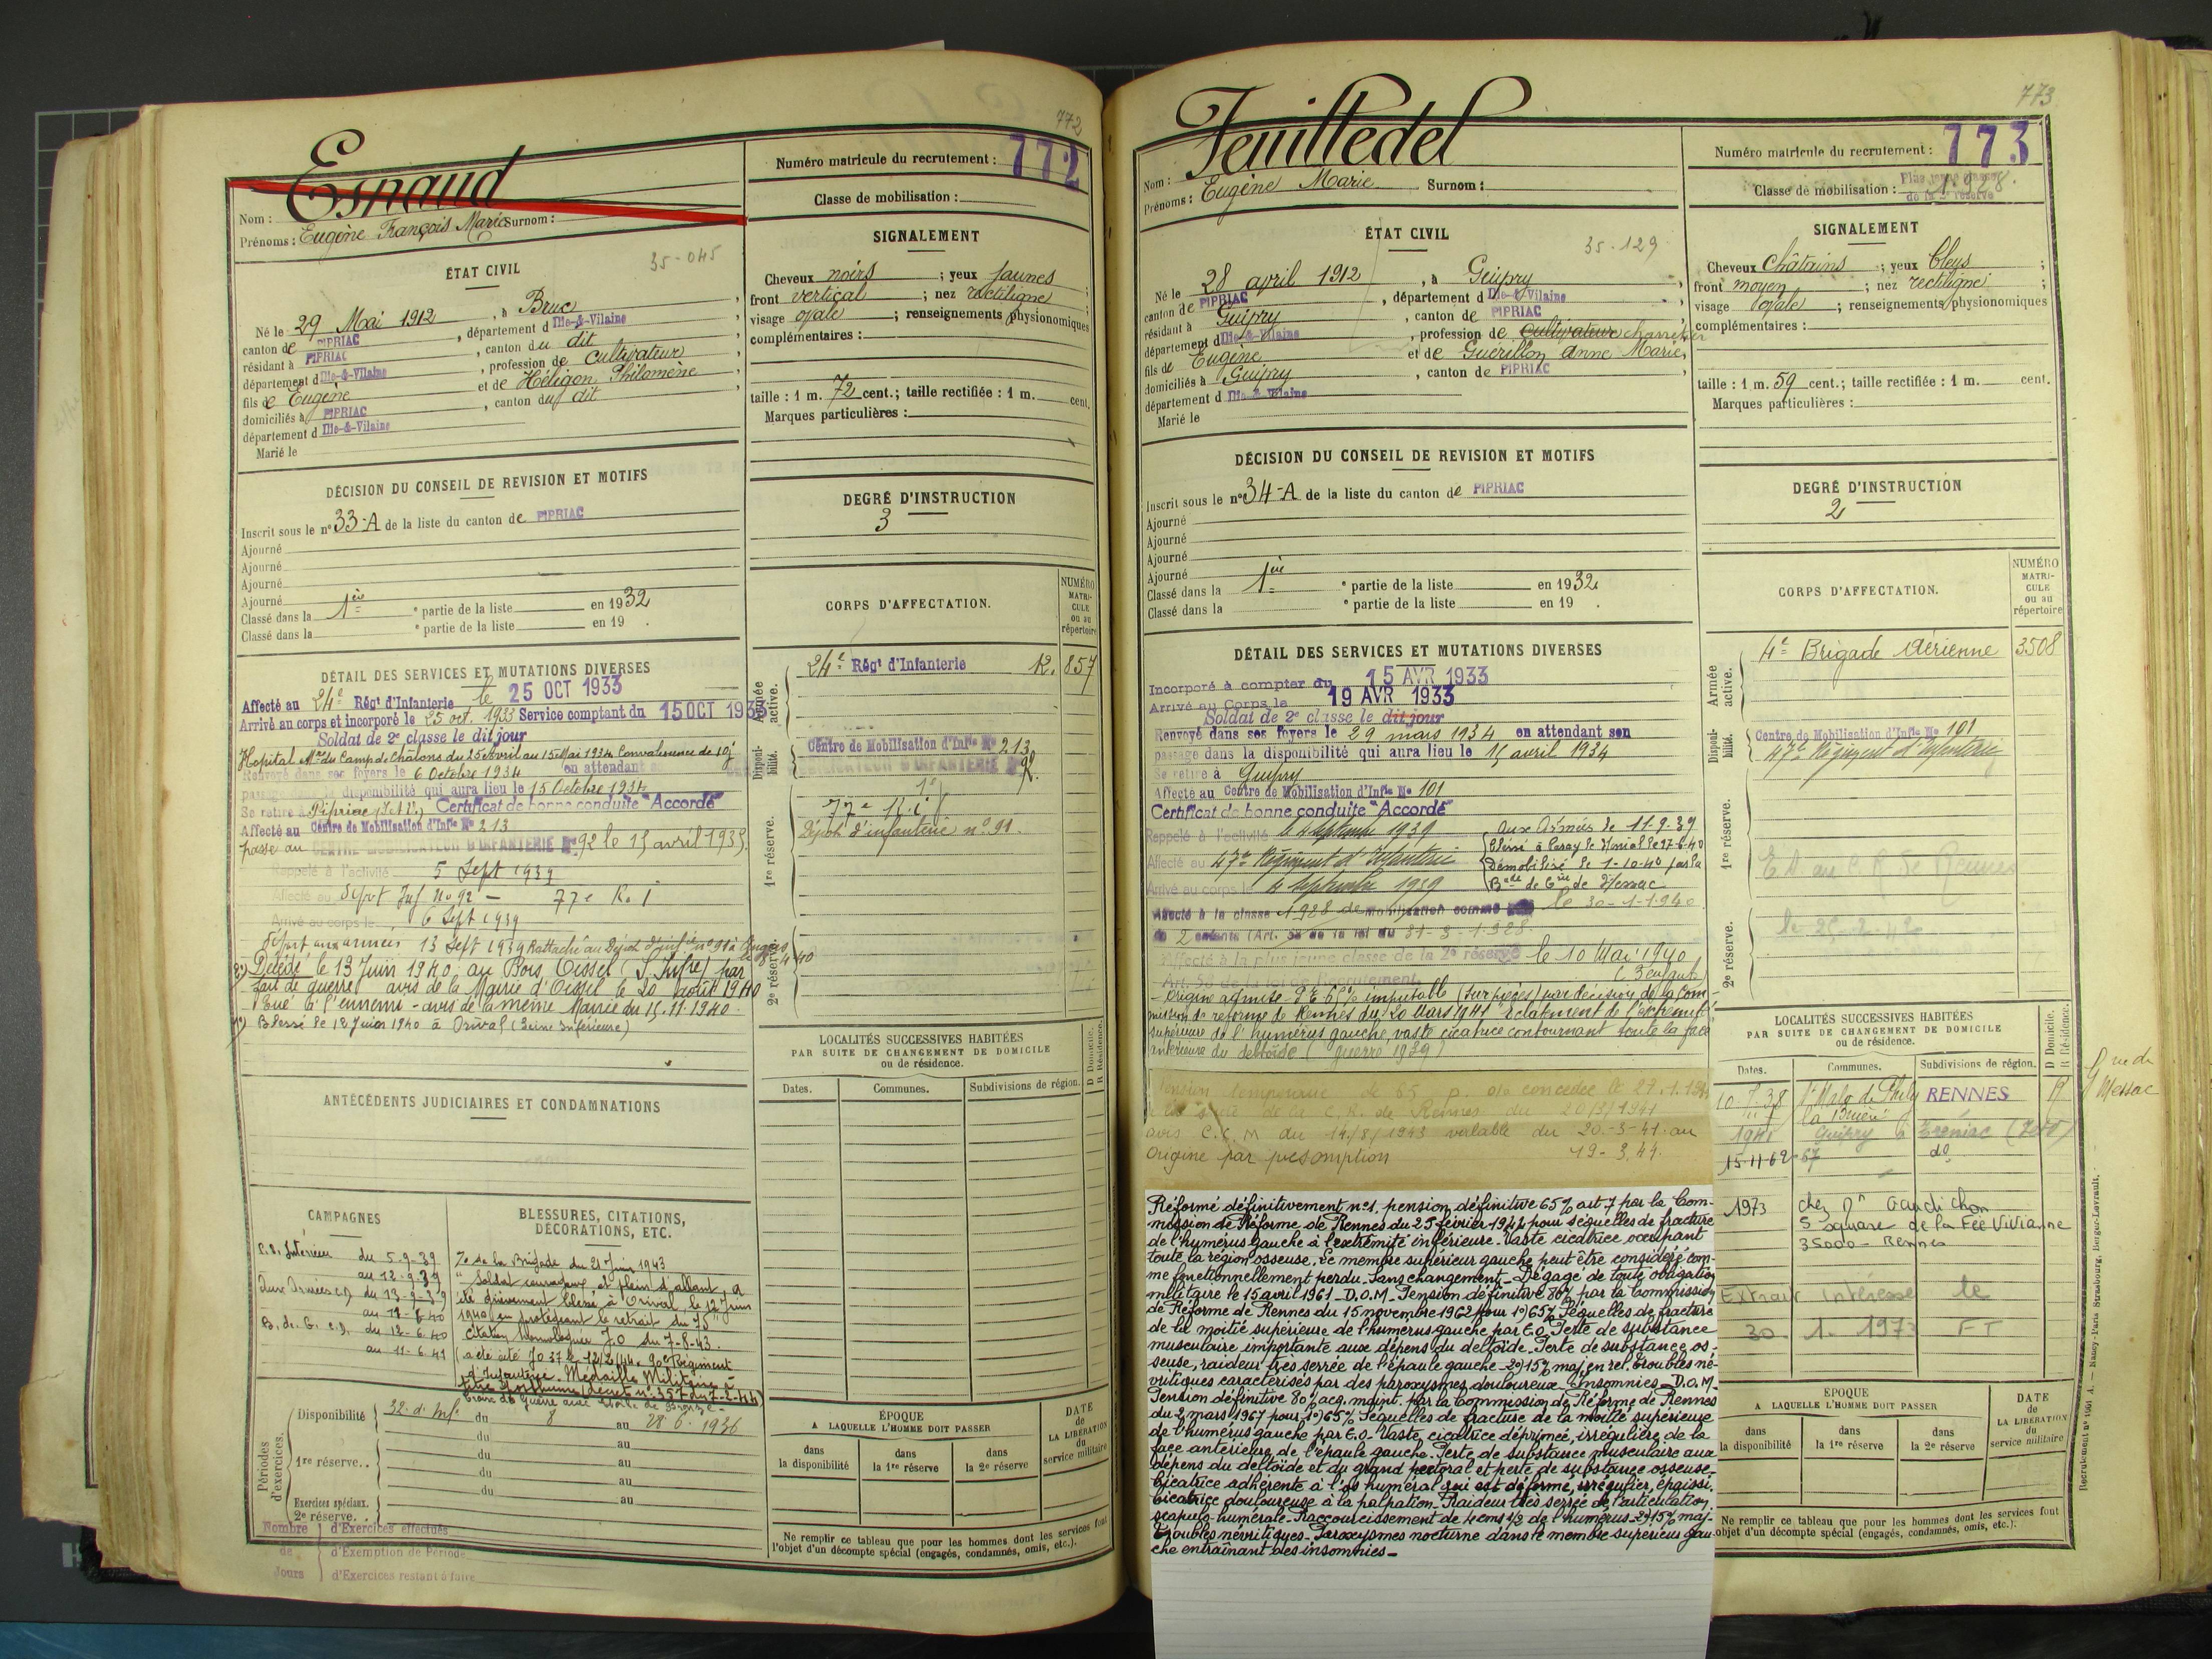 772
Esnaud
Nom :
Prénoms : Eugène François Marie Surnom :
Numéro matricule du recrutement : 772
Classe de mobilisation :
ÉTAT CIVIL
35-045
Né le 29 Mai 1912, à Bruc,
canton de PIPRIAC, département d Ille-&-Vilaine,
résidant à PIPRIAC, canton du dit,
département d Ille-&-Vilaine, profession de cultivateur
fils de Eugène et de Héligon Philomène,
domiciliés à PIPRIAC, canton du dit,
département d Ille-&-Vilaine
Marié le
SIGNALEMENT
Cheveux noirs ; yeux jaunes ;
front vertical ; nez rectiligne ;
visage ovale ; renseignements physionomiques
complémentaires :
taille : 1 m. 72 cent.; taille rectifiée : 1 m. cent.
Marques particulières :
DÉCISION DU CONSEIL DE REVISION ET MOTIFS
Inscrit sous le n° 33-A de la liste du canton de PIPRIAC
Ajourné
Ajourné
Ajourné
Ajourné
Classé dans la 1ère * partie de la liste en 1932
Classé dans la * partie de la liste en 19 .
DEGRÉ D'INSTRUCTION
3
DÉTAIL DES SERVICES ET MUTATIONS DIVERSES
Affecté au 24e Régt d'Infanterie le 25 OCT 1933
Arrivé au corps et incorporé le 25 oct. 1933 Service comptant du 15 OCT 1933
Soldat de 2e classe le dit jour
Hopital Mre du Camp de Châlons du 25 Avril au 15 Mai 1934 Convalescence de 10j
Renvoyé dans ses foyers le 6 Octobre 1934 en attendant
passage dans la disponibilité qui aura lieu le 15 Octobre 1934
Se retire à Pipriac (I et V.) Certificat de bonne conduite "Accordé"
Affecté au Centre de Mobilisation d'Infie No 213
passé au CENTRE MOBILISATEUR D'INFANTERIE No 92 le 15 avril 1935.
Rappelé à l'activité 5 Sept 1939
Affecté au Dépot Inf No 92 - 77e R.I
Arrivé au corps le 6 Sept 1939
Départ aux armées 13 Sept 1939 Rattaché au Dépôt d'infie no 91 à Angers
2°) Décédé le 13 Juin 1940 au Bois Oissel (S. Infre) par
fait de guerre avis de la Mairie d'Oissel le 20 août 1940
Tué à l'ennemi - avis de la même Mairie du 15-11-1940.
1°) Blessé le 12 Juin 1940 à Orival (Seine inférieure)
CORPS D'AFFECTATION.
NUMÉRO MATRICULE ou au répertoire
Armée active.
24e Régt d'Infanterie 12. 857
Disponibilité.
Centre de Mobilisation d'Infie No 213
MOBILISATEUR D'INFANTERIE No 92.
1re réserve.
77e R.I
Dépôt d'infanterie n° 91.
2e réserve.
ANTÉCÉDENTS JUDICIAIRES ET CONDAMNATIONS
LOCALITÉS SUCCESSIVES HABITÉES
PAR SUITE DE CHANGEMENT DE DOMICILE
ou de résidence.
D Domicile. R Résidence.
Dates. Communes. Subdivisions de région.
CAMPAGNES
C.S. Intérieur du 5-9-39
au 12-9-39
Aux Armées C.D du 13-9-39
au 11-6-40
B. de G. C.D. du 12-6-40
au 11-6-41
BLESSURES, CITATIONS,
DÉCORATIONS, ETC.
O de la Brigade du 21 Juin 1943
"Soldat courageux et plein d'allant, a
été grièvement blessé à Orival, le 12 Juin
1940, en protégeant le retrait du 75"
Citation homologuée J.O du 7-8-43.
(a été cité J.O 37 du 12/2/44. 90e Régiment
d'Infanterie. Médaille Militaire à
titre Posthume (décret n° 357 du 7-2-44)
Croix de guerre avec étoile de Bronze
Périodes d'exercices.
Disponibilité 32e d. Infie du 8 au 28-6-1936
du au
1re réserve.. du au
du au
du au
Exercices spéciaux. au
2e réserve..
Nombre d'Exercices effectués
de d'Exemption de Période
Jours d'Exercices restant à faire
ÉPOQUE
A LAQUELLE L'HOMME DOIT PASSER
dans la disponibilité
dans la 1re réserve
dans la 2e réserve
DATE de LA LIBÉRATION du service militaire
Ne remplir ce tableau que pour les hommes dont les services font
l'objet d'un décompte spécial (engagés, condamnés, omis, etc.).
773
Feuilledel
Nom :
Prénoms : Eugène Marie Surnom :
Numéro matricule du recrutement : 773
Classe de mobilisation : 1928.
Plus jeune classe
de la 2e réserve
ÉTAT CIVIL
35-129
Né le 28 avril 1912, à Guipry,
canton de PIPRIAC, département d Ille-&-Vilaine,
résidant à Guipry, canton de PIPRIAC
département d Ille-&-Vilaine, profession de cultivateur charretier
fils de Eugène et de Guérillon Anne Marie,
domiciliés à Guipry, canton de PIPRIAC
département d Ille-&-Vilaine
Marié le
SIGNALEMENT
Cheveux châtains ; yeux bleus ;
front moyen ; nez rectiligne ;
visage ovale ; renseignements physionomiques
complémentaires :
taille : 1 m. 59 cent.; taille rectifiée : 1 m. cent.
Marques particulières :
DÉCISION DU CONSEIL DE REVISION ET MOTIFS
Inscrit sous le n° 34-A de la liste du canton de PIPRIAC
Ajourné
Ajourné
Ajourné
Ajourné
Classé dans la 1ère * partie de la liste en 1932
Classé dans la * partie de la liste en 19 .
DEGRÉ D'INSTRUCTION
2
DÉTAIL DES SERVICES ET MUTATIONS DIVERSES
Incorporé à compter du 15 AVR 1933
Arrivé au Corps le 19 AVR 1933
Soldat de 2e classe le dit jour
Renvoyé dans ses foyers le 29 mars 1934 en attendant son
passage dans la disponibilité qui aura lieu le 15 avril 1934
Se retire à Guipry
Affecté au Centre de Mobilisation d'Infie No 101
Certificat de bonne conduite "Accordé"
Rappelé à l'activité le 4 septembre 1939
Affecté au 47e Régiment d'Infanterie
Arrivé au corps le 4 septembre 1939
Aux Armées le 11-9-39
blessé à Paray le Monial le 17-6-40
Démobilisé le 1-10-40 par la
Bade de Grie de Messac
Affecté à la classe 1928 de mobilisation comme le 30-1-1940
de 2 enfants (Art. 58 de la loi du 31-3-1928
Affecté à la plus jeune classe de la 2e réserve le 10 Mai 1940
(3 enfants)
- Origine admise P.E 65% imputable (sur pièces) par décision de la Com-
mission de réforme de Rennes du 20 Mars 1941 "Eclatement de l'extrémité
supérieure de l'humérus gauche, vaste cicatrice contournant toute la face
antérieure du deltoïde (guerre 1939)
Pension temporaire de 65 p. % concédée le 27.1.194
de la C.R. de Rennes du 20/3/1941
avis C.C.M du 14/8/1943 valable du 20-3-41 au
Origine par présomption 19-3-44.
Réformé définitivement n°1, pension définitive 65% art 7 par la Com-
mission de Réforme de Rennes du 25 février 1944 pour séquelles de fracture
de l'humérus gauche à l'extrémité inférieure. Vaste cicatrice occupant
toute la région osseuse. Le membre supérieur gauche peut être considéré com-
me fonctionnellement perdu. Sans changement - Dégagé de toute obligation
militaire le 15 avril 1961 - D.O.M. Pension définitive 80% par la Commission
de Réforme de Rennes du 15 novembre 1962 pour 1°) 65% Séquelles de fracture
de la moitié supérieure de l'humérus gauche par E.O. Perte de substance
musculaire importante aux dépens du deltoïde. Perte de substance os-
seuse, raideur très serrée de l'épaule gauche - 2°) 15% maj en rel. troubles né-
vritiques caractérisés par des paroxysmes douloureux. Insomnies - D.O.M.
Pension définitive 80% acq. maint. par la Commission de Réforme de Rennes
du 2 mars 1967 pour 1°) 65% Séquelles de fracture de la moitié supérieure
de l'humérus gauche par E.O. Vaste cicatrice déprimée, irrégulière de la
face antérieure de l'épaule gauche. Perte de substance musculaire aux
dépens du deltoïde et du grand pectoral et perte de substance osseuse.
Cicatrice adhérente à l'os huméral qui est déformé, irrégulier, épaissi.
Cicatrice douloureuse à la palpation. Raideur très serrée de l'articulation
scapulo-humérale. Raccourcissement de 4 cms 1/2 de l'humérus - 2°) 15% maj-
Troubles névritiques. Paroxysmes nocturne dans le membre supérieur gau-
che entraînant des insomnies -
CORPS D'AFFECTATION.
NUMÉRO MATRICULE ou au répertoire
Armée active.
4e Brigade Aérienne 3508
Disponibilité.
Centre de Mobilisation d'Infie No 101
47e Régiment d'Infanterie
1re réserve.
2e réserve.
LOCALITÉS SUCCESSIVES HABITÉES
PAR SUITE DE CHANGEMENT DE DOMICILE
ou de résidence.
D Domicile. R Résidence.
Dates. Communes. Subdivisions de région.
10-7-38 St Malo de Phily RENNES R
1941 Guipry
15-11-62 do
rue de
Messac
1973 chez Mr Gaudichon
5 square de la Fée Viviane
35000 - Rennes
Extrait Intéressé le
30 1- 1973 FT
ÉPOQUE
A LAQUELLE L'HOMME DOIT PASSER
dans la disponibilité
dans la 1re réserve
dans la 2e réserve
DATE de LA LIBÉRATION du service militaire
Ne remplir ce tableau que pour les hommes dont les services font
l'objet d'un décompte spécial (engagés, condamnés, omis, etc.).
Nancy-Paris Strasbourg, Berger-Levrault.